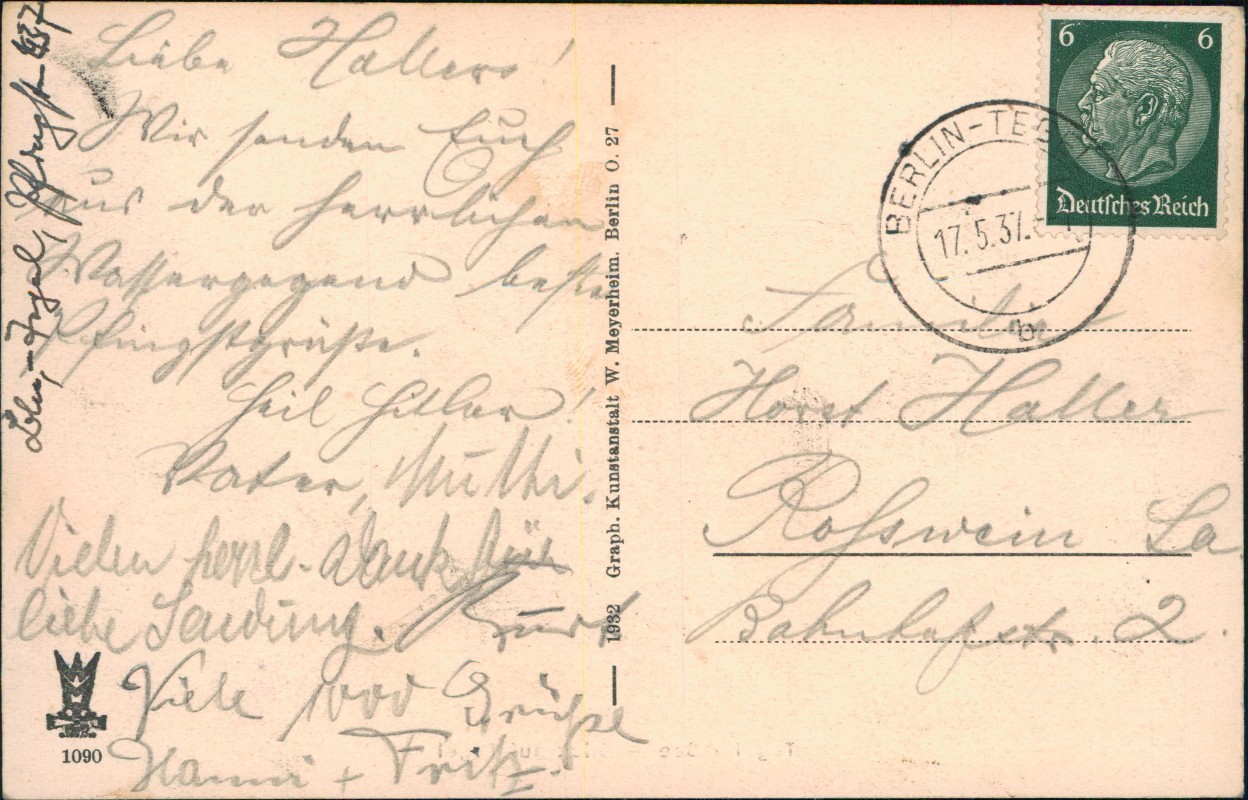 Bln.-Tegel, Pfingst. 1937
Liebe Hallers!
Wir senden Euch
aus der herrlichen
Wassergegend beste
Pfingstgrüße.
Heil Hitler!
Vater, Mutti.
Vielen herzl. Dank für
liebe Sendung. Kurt
Viele 1000 Grüße
Hanni + Fritz.
1090
1932 Graph. Kunstanstalt W. Meyerheim. Berlin O. 27
6 6
Deutsches Reich
BERLIN-TEG
17.5.37.
b
Familie
Horst Haller
Roßwein Sa.
Bahnhofstr. 2.